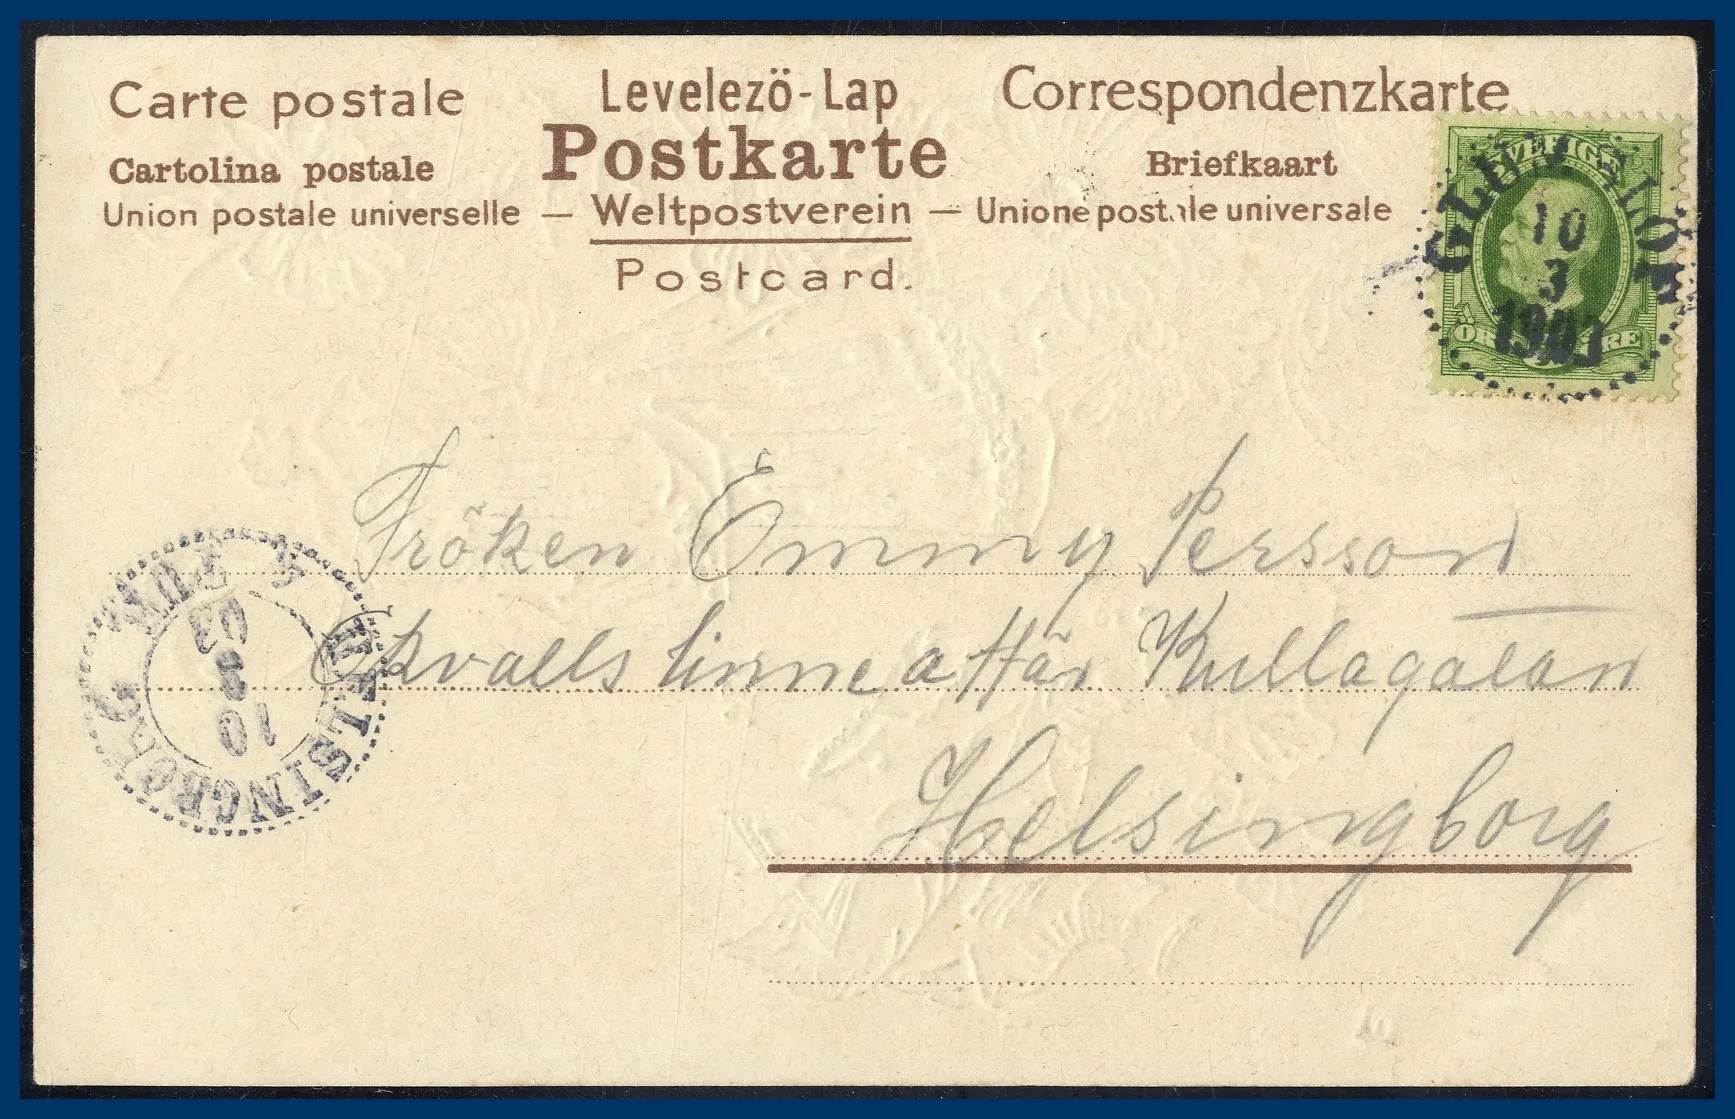 Carte postale
Levelezö-Lap
Correspondenzkarte
Cartolina postale
Postkarte
Briefkaart
Union postale universelle — Weltpostverein — Unione postale universale
Postcard.
SVERIGE
10
3
1903
ÖRE
Fröken Emmy Persson
Kullagatan
Helsingborg
HELSINGBORG
10
3
03